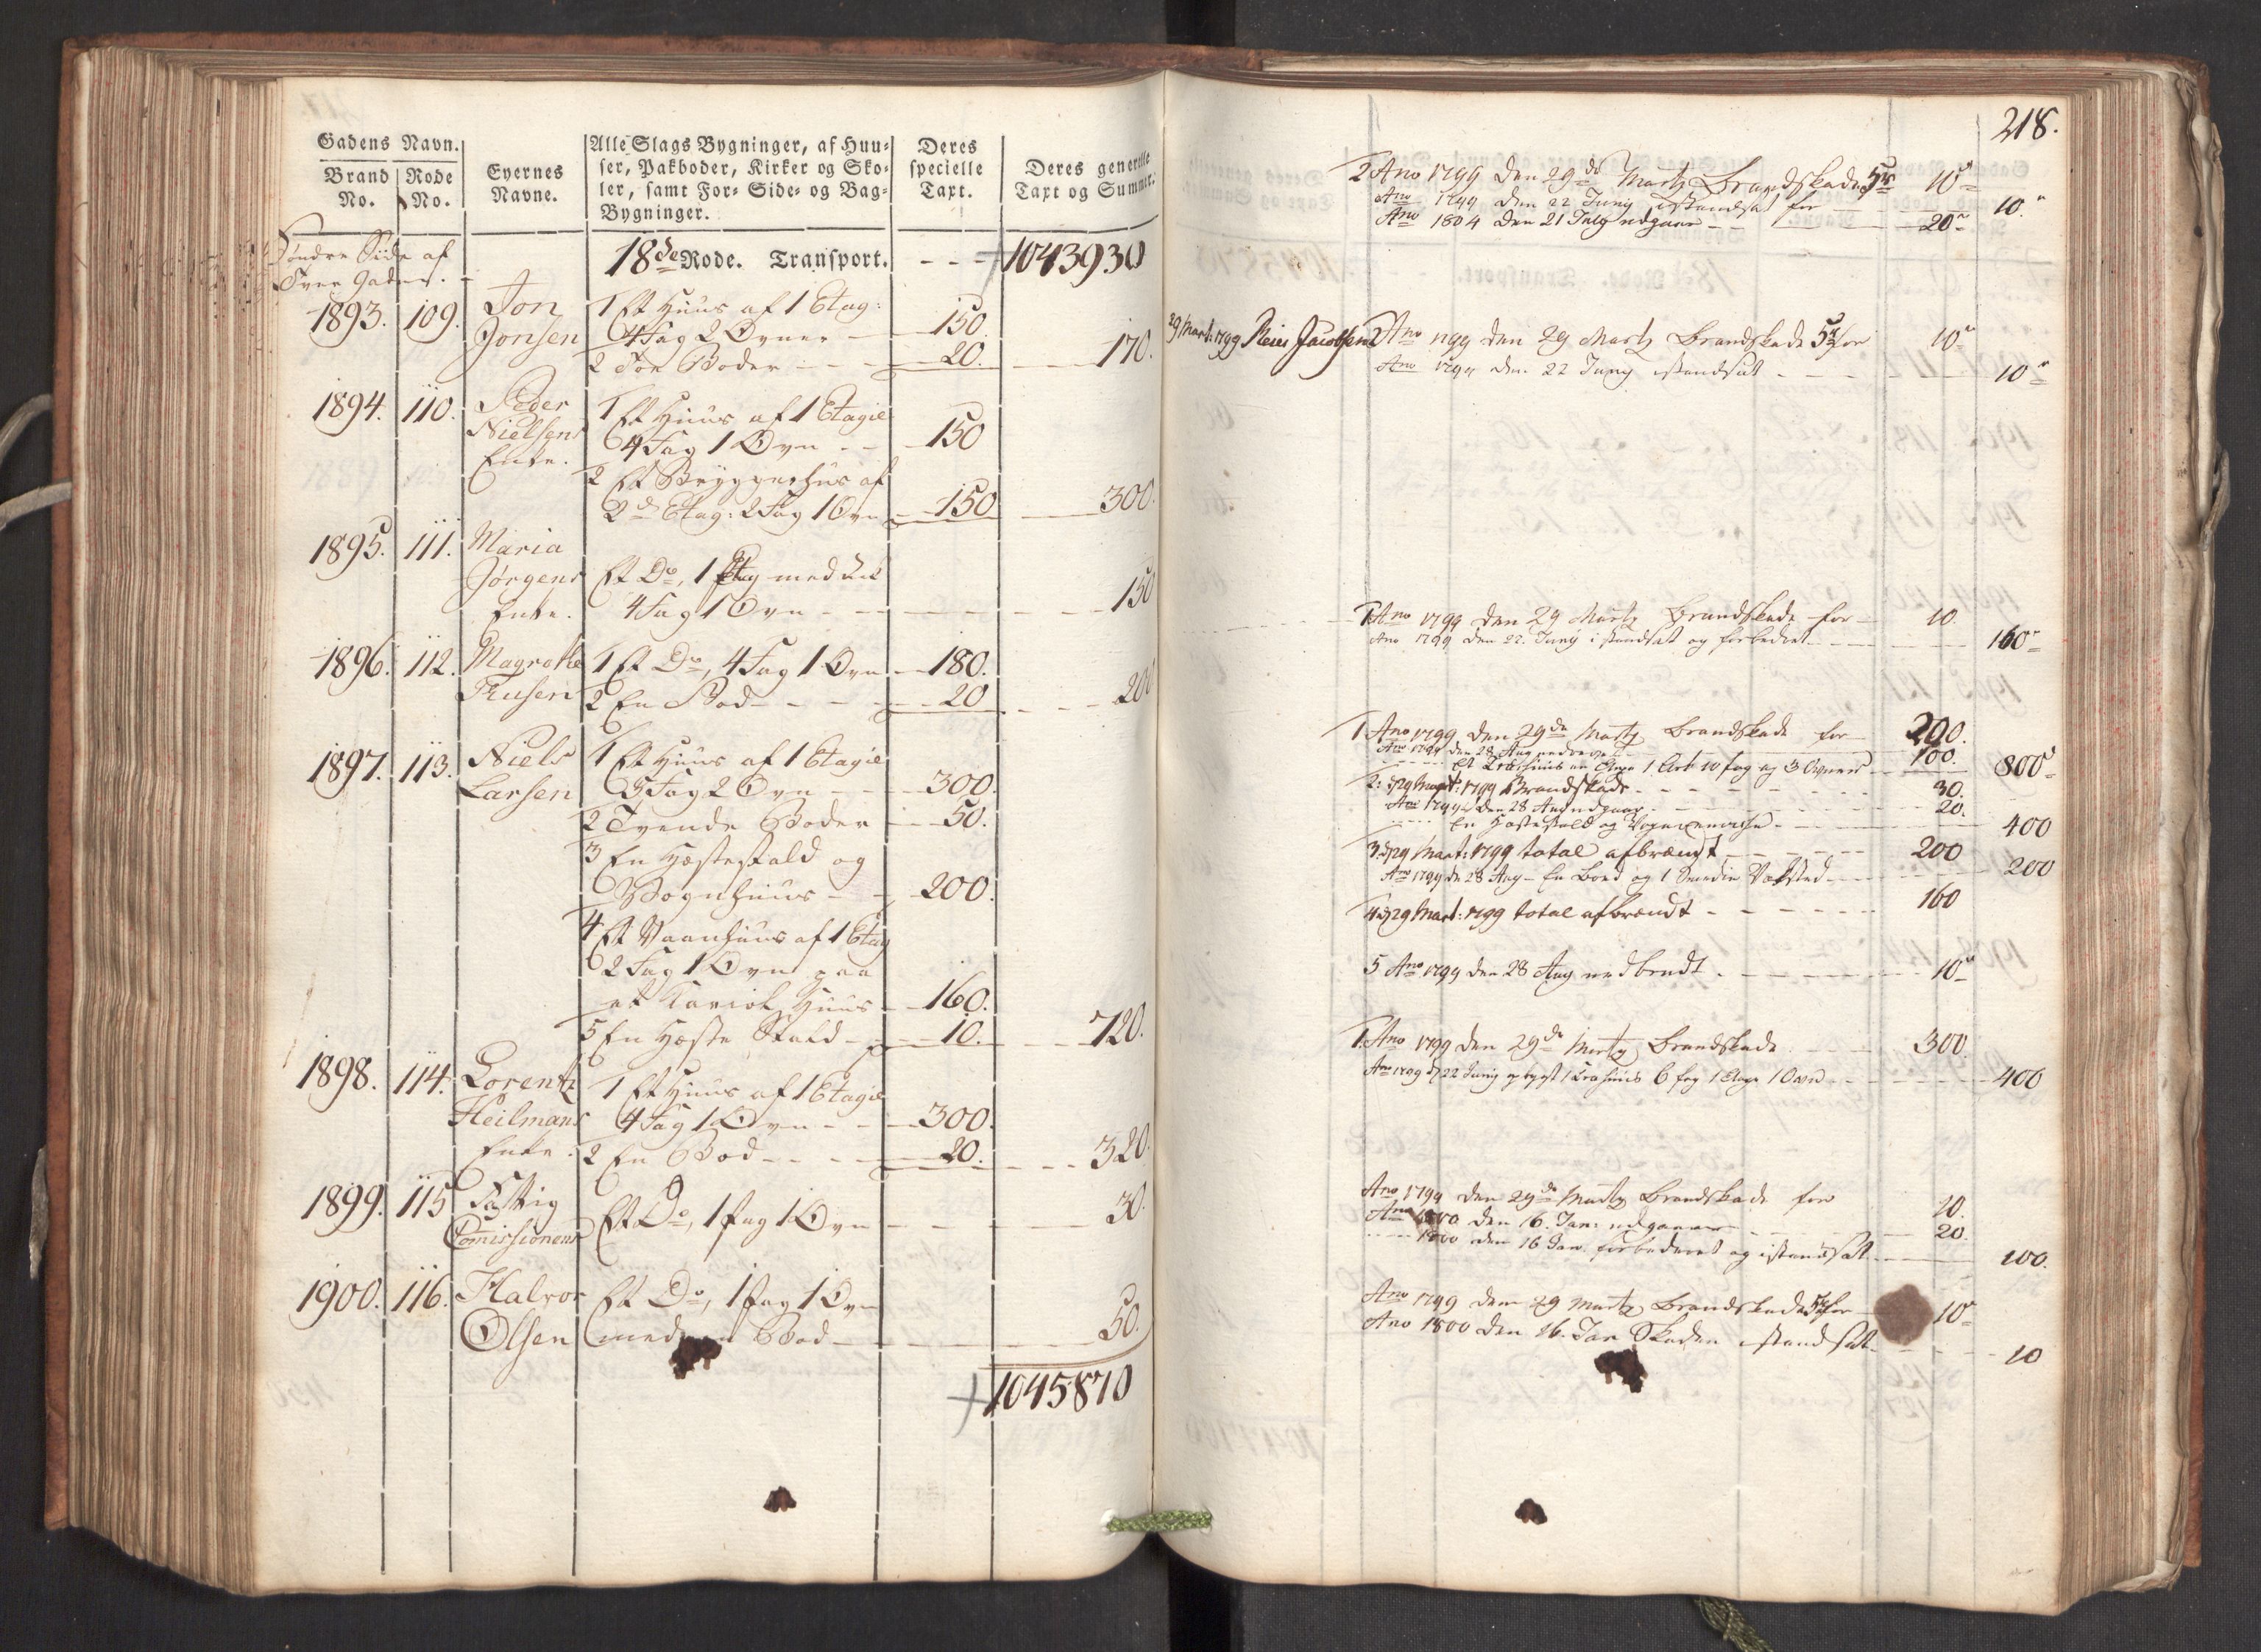 Gadens Navn.
Brand No.
Rode No.
Eyernes Navne.
Alle Slags Bygninger, af Huu-
ser, Pakboder, Kirker og Sko-
ler, samt For- Side- og Bag-
Bygninger.
Deres specielle Taxt.
Deres generelle Taxt og Summer.
Søndre Side af
Tver Gaden.
18de Rode. Transport. - - - 1043930
1893. 109. Jon 1 Et Huus af 1 Etag:
Jonsen 4 Fag 2 Ovner - 150.
2 Toe Boder - - - 20. - 170.
1894. 110. Peder 1 Et Huus af 1 Etagie
Nielsens 4 Fag 1 Ovn - - 150
Enke. 2 Et Bryggerhus af
2de Etag: 2 Fag 1 Ovn 150 - 300.
1895. 111. Maria
Jørgens Et Do, 1 Etag med
Enke. 4 Fag 1 Ovn - - - 150
1896. 112. Magrethe 1 Et Do, 4 Fag 1 Ovn - 180.
Trusen 2 En Bod - - - 20 - - 200
1897. 113. Niels 1 Et Huus af 1 Etagie
Larsen 5 Fag 2 Ovn - - 300.
2 Tvende Boder - 50.
3 En Hæstestald og
Vognhuus - - 200.
4 Et Vaanhuus af 1 Etag
2 Fag 1 Ovn paa
et Kariol Huus - 160.
5 En Hæste Stald - 10. - - 720.
1898. 114. Lorentz 1 Et Huus af 1 Etagie
Heilmans 4 Fag 1 Ovn - - 300.
Enke. 2 En Bod - - - 20. - - 320.
1899. 115 Fattig
Comissionens Et Do, 1 Fag 1 Ovn - - 30.
1900. 116. Halvor Et Do, 1 Fag 1 Ovn
Olsen med en Bod - - - 50.
1045870
218.
2 Ano 1799 den 29de Martz Brandskade 5 10
Ano 1799 den 22 Juny istandsat for - 10.
Ano 1804 den 21 July udgaar - - 20
29 Mart: 1799 Reier Jacobsen 2 Ano 1799 den 29 Martz Brandskade for 10
Ano 1799 den 22 Juny istandsat - - - 10
1 Ano 1799 den 29 Martz Brandskade for - 10.
Ano 1799 den 22. Juny istandsat og forbedret - - - 160
1 Ano 1799 den 29de Martz Brandskade for 200.
Ano 1799 den 28 Aug - 100.
1 10 fag og 3 Ovner - 800
2: 29 Mart: 1799 Brandskade - - - 30.
Ano 1799 den 28 Aug udgaar - 20.
En Hæstestald og - - 400
3. 29 Mart: 1799 total afbrændt - - - 200
Ano 1799 d 28 Aug - En Boed og 1 Smedie - - 200
4. 29 Mart: 1799 total afbrændt - - - 160
5 Ano 1799 den 28 Aug nedbrendt - - - 10
1. Ano 1799 den 29de Martz Brandskade - - 300.
Ano 1799 d 22 Juny opbygt 1 6 fag 1 Etage 1 Ovn - - 400
Ano 1799 den 29de Martz Brandskade for 10.
Ano 1800 den 16. Jan: udgaar - - 20.
1800 den 16 Jan. forbedret og istandsat - 100.
Ano 1799 den 29 Martz Brandskade for 10
Ano 1800 den 16. Jan Skaden istandsat - - 10